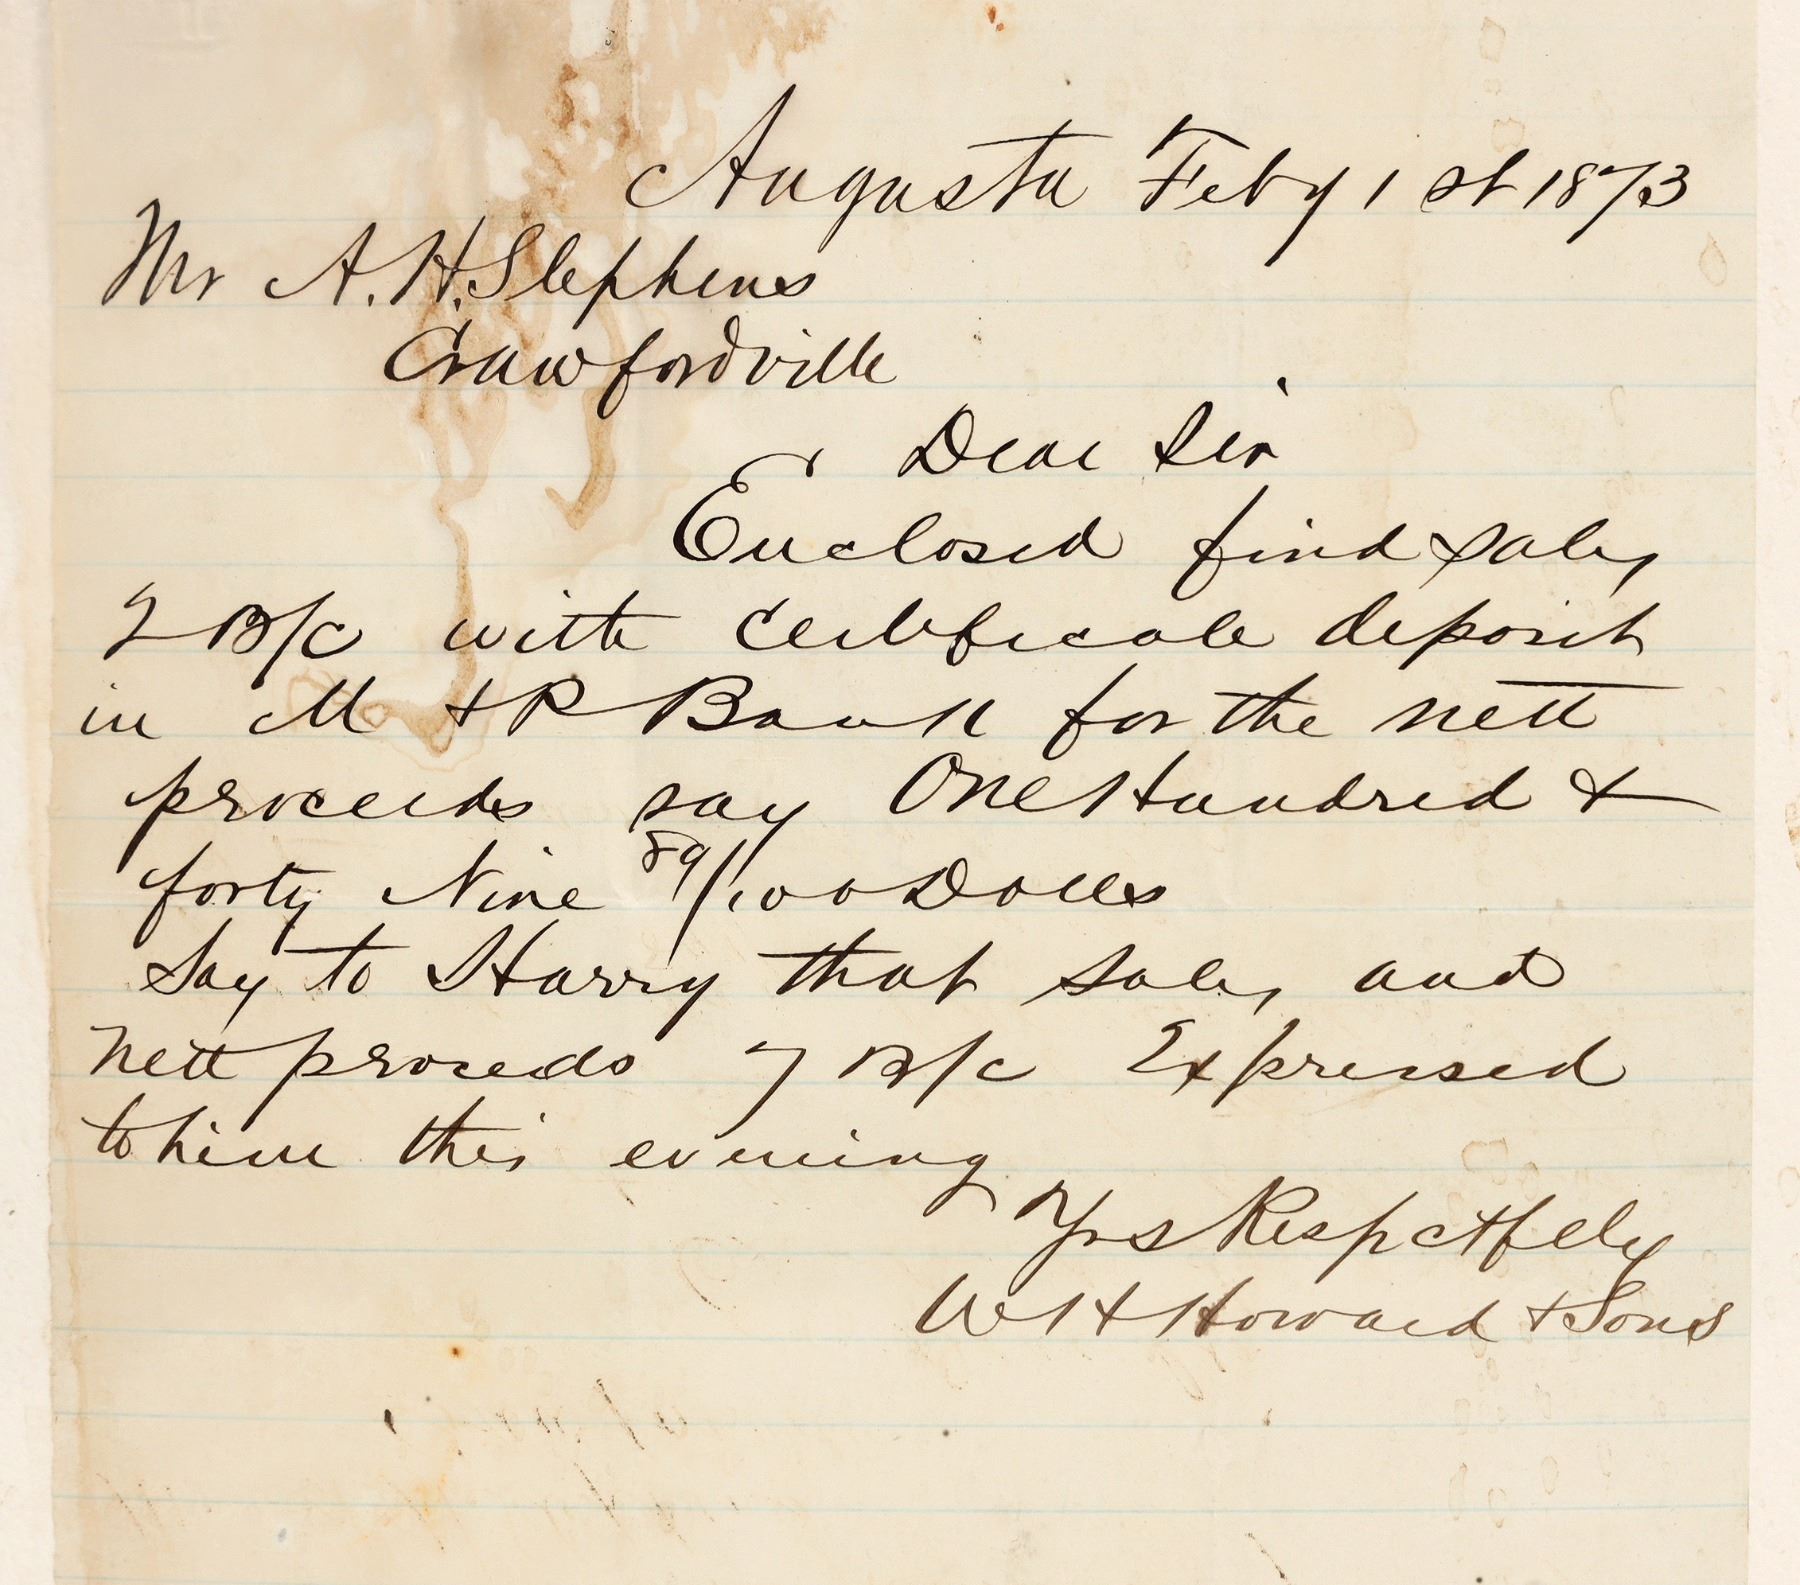 Augusta Feby 1st 1873
Mr A. H. Stephens
Crawfordville
Dear Sir
Enclosed find sales
2 B/C with Certificate deposit
in M & P Bank for the nett
proceeds say One Hundred &
forty Nine 89/100 Dolls
Say to Harry that sales and
Nett proceeds 7 B/C Expressed
to him this evening
Yrs Respctfely
W H Howard & Sons